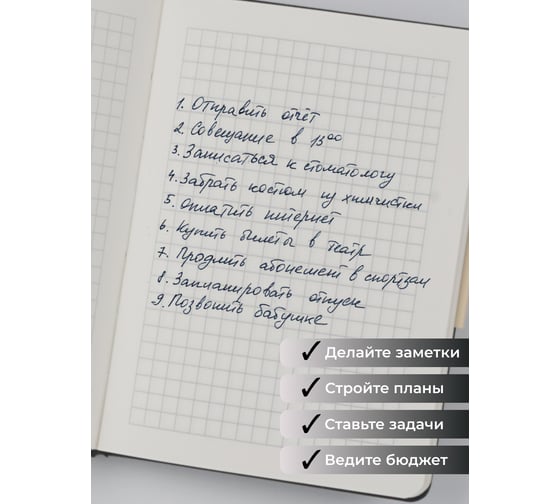 1. Отправить отчёт
2. Совещание в 15⁰⁰
3. Записаться к стоматологу
4. Забрать костюм из химчистки
5. Оплатить интернет
6. Купить билеты в театр
7. Продлить абонемент в спортзал
8. Запланировать отпуск
9. Позвонить бабушке
Делайте заметки
Стройте планы
Ставьте задачи
Ведите бюджет